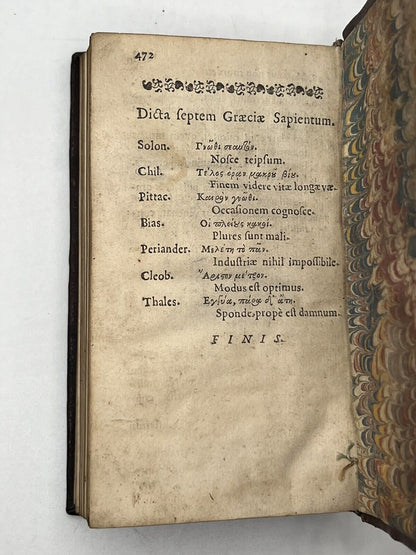 472
Dicta septem Græciæ Sapientum.
Solon. Γνῶθι σεαυτόν.
Nosce teipsum.
Chil. Τέλος ὁρᾷν μακροῦ βίου.
Finem videre vitæ longævæ.
Pittac. Καιρὸν γνῶθι.
Occasionem cognosce.
Bias. Οἱ πλείους κακοί.
Plures sunt mali.
Periander. Μελέτη τὸ πᾶν.
Industriæ nihil impossibile.
Cleob. Ἄριστον μέτρον.
Modus est optimus.
Thales. Εγγύα, πάρα δ' ἄτη.
Sponde, propè est damnum.
FINIS.